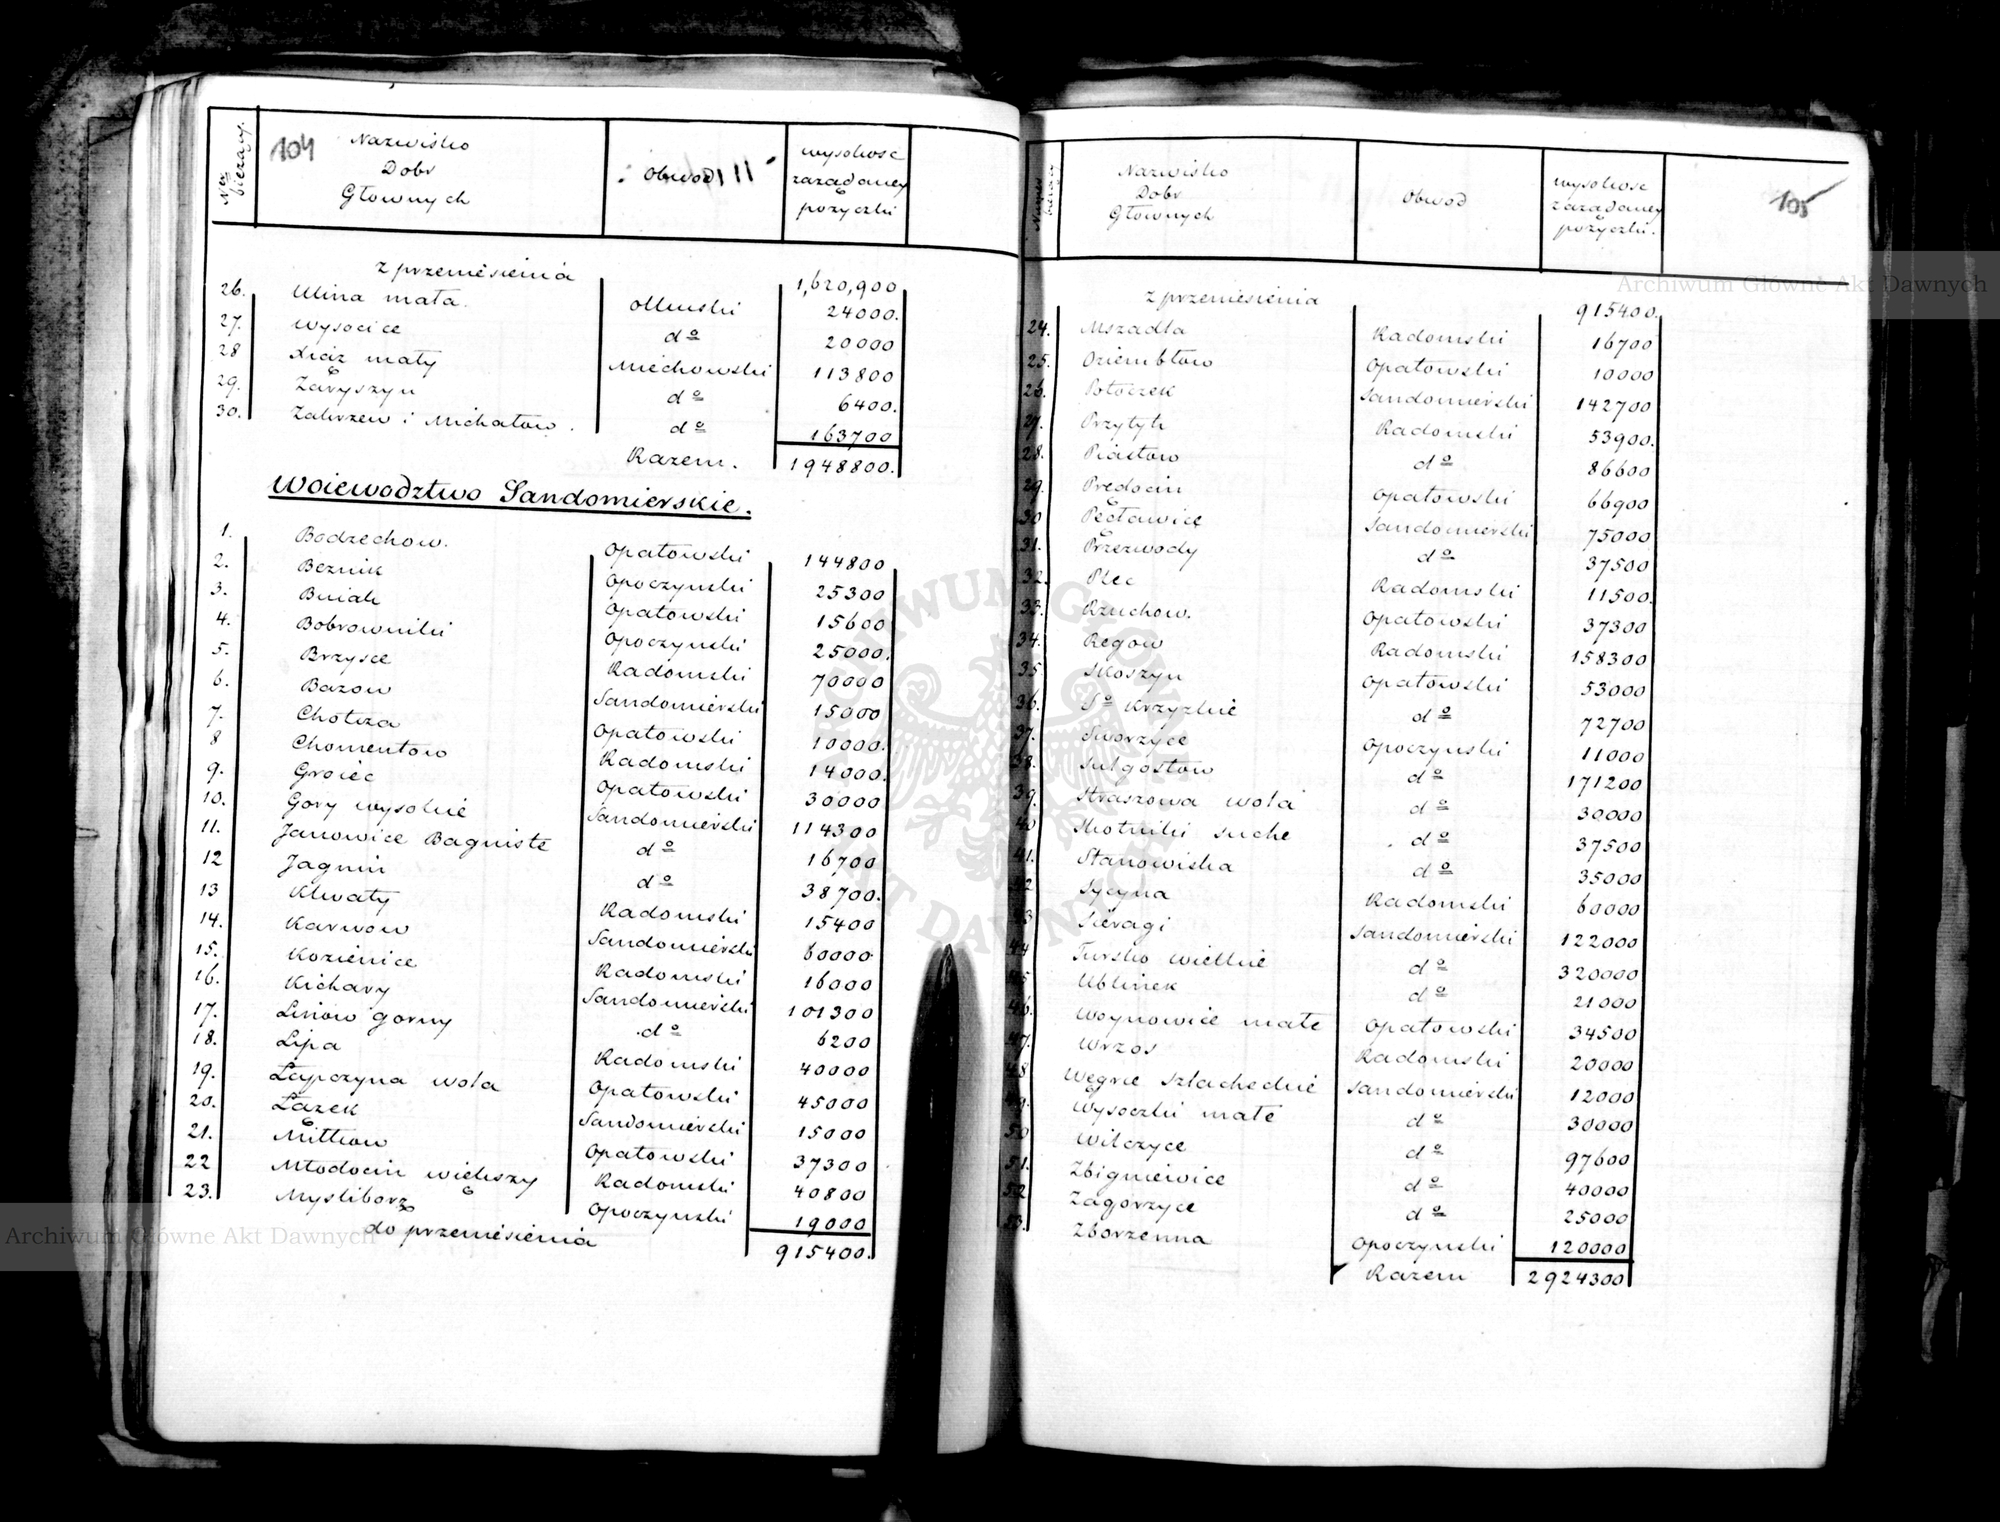 104
Ner bieżący.
Nazwisko
Dobr
Głownych
Obwod
wysokosc
zażądaney
pożyczki
z przeniesienia 1,620,900
26. Ulina mała. Olkuski 24000.
27. Wysocice do 20000
28 Xiąz mały Miechowski 113800
29. Zaryszyn do 6400.
30. Zakrzew i Michałow. do 163700
Razem. 1948800.
Woiewodztwo Sandomierskie.
1. Bodzechow. Opatowski 144800
2. Beznik Opoczynski 25300
3. Buiak Opatowski 15600
4. Bobrowniki Opoczynski 25000.
5. Brzysce Radomski 70000
6. Bazow Sandomierski 15000
7. Chotcza Opatowski 10000.
8 Chomentow Radomski 14000.
9. Groiec Opatowski 30000
10. Gory wysokie Sandomierski 114300
11. Janowice Bagniste do 16700
12 Jagnin do 38700.
13 Klwaty Radomski 15400
14. Karwow Sandomierski 60000
15. Kozienice Radomski 16000
16. Kichary Sandomierski 101300
17. Linow gorny do 6200
18. Lipa Radomski 40000
19. Łapczyna wola Opatowski 45000
20. Łazek Sandomierski 15000
21. Miłkow Opatowski 37300
22 Młodocin większy Radomski 40800
23. Mysliborz Opoczynski 19000
do przeniesienia 915400.
105
Numer bieżący
Nazwisko
Dobr
Głownych
Obwod
wysokosc
zażądaney
pożyczki.
z przeniesienia 915400.
24. Mszadla Radomski 16700
25. Oziembłow Opatowski 10000
26. Potoczek Sandomierski 142700
27. Przytyk Radomski 53900.
28. Piastow do 86600
29. Prędocin Opatowski 66900
30 Pęcławice Sandomierski 75000
31. Przezwody do 37500
32. Plec Radomski 11500.
33. Rzuchow. Opatowski 37300
34. Regow Radomski 158300
35 Skoszyn Opatowski 53000
36. So Krzyzkie do 72700
37. Sworzyce Opoczynski 11000
38. Sulgostow do 171200
39. Straszowa wola do 30000
40 Skotniki suche do 37500
41. Stanowiska do 35000
42 Sycyna Radomski 60000
43 Sieragi Sandomierski 122000
44 Tursko wielkie do 320000
45 Ublinek do 21000
46. Woynowice małe Opatowski 34500
47. Wrzos Radomski 20000
48 Węgrce szlacheckie Sandomierski 12000
49. Wysoczki małe do 30000
50 Wilczyce do 97600
51. Zbigniewice do 40000
52 Zagorzyce do 25000
53. Zborzenna Opoczynski 120000
Razem 2924300
Archiwum Główne Akt Dawnych
Archiwum Główne Akt Dawnych
ARCHIWUM GŁÓWNE AKT DAWNYCH